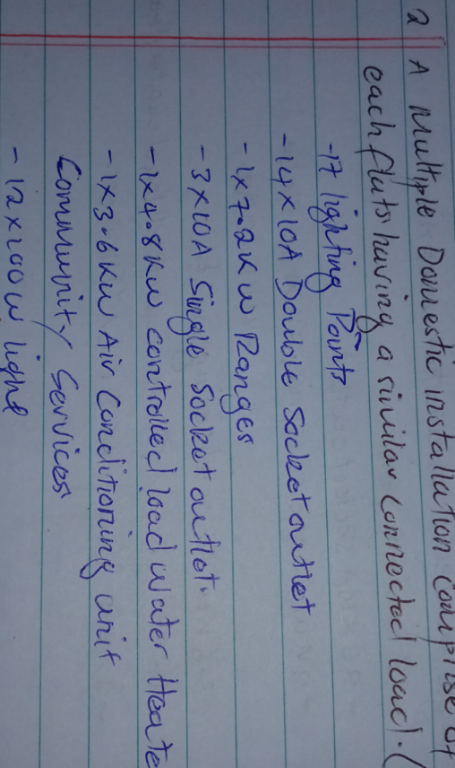 2 A Multiple Domestic installation comprise of
each flats having a similar connected load. (
-17 lighting Points
-14x10A Double Socket outlet
-1x7.2KW Ranges
-3x10A Single Socket outlet.
-1x4.8KW controlled load water Heate
-1x3.6KW Air Conditioning unit
Community Services
-12x100W light